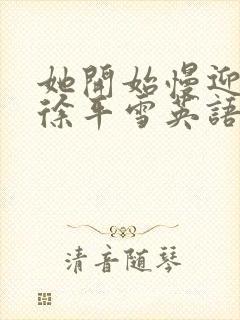 她開始慢迎
徐平雪英語
清音随琴